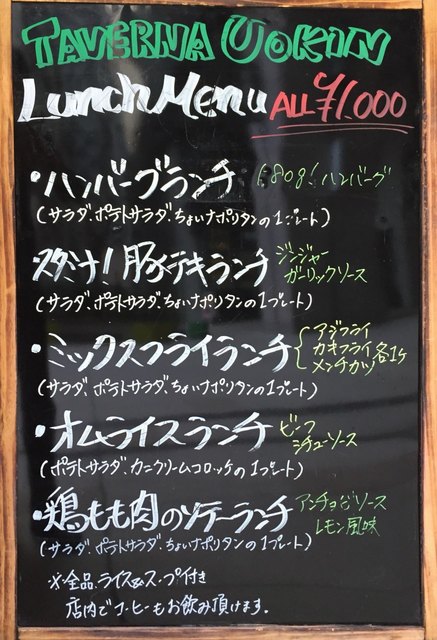 TAVERNA UOKIN
Lunch Menu ALL ¥1,000
・ハンバーグランチ 180g!ハンバーグ
(サラダ、ポテトサラダ、ちょいナポリタンの1プレート)
スタミナ!豚テキランチ ジンジャー
ガーリックソース
(サラダ、ポテトサラダ、ちょいナポリタンの1プレート)
・ミックスフライランチ アジフライ
カキフライ 各1ヶ
メンチカツ
(サラダ、ポテトサラダ、ちょいナポリタンの1プレート)
・オムライスランチ ビーフ
シチューソース
(ポテトサラダ、カニクリームコロッケの1プレート)
・鶏もも肉のソテーランチ アンチョビソース
レモン風味
(サラダ、ポテトサラダ、ちょいナポリタンの1プレート)
※全品、ライス&スープ付き
店内でコーヒーもお飲み頂けます。